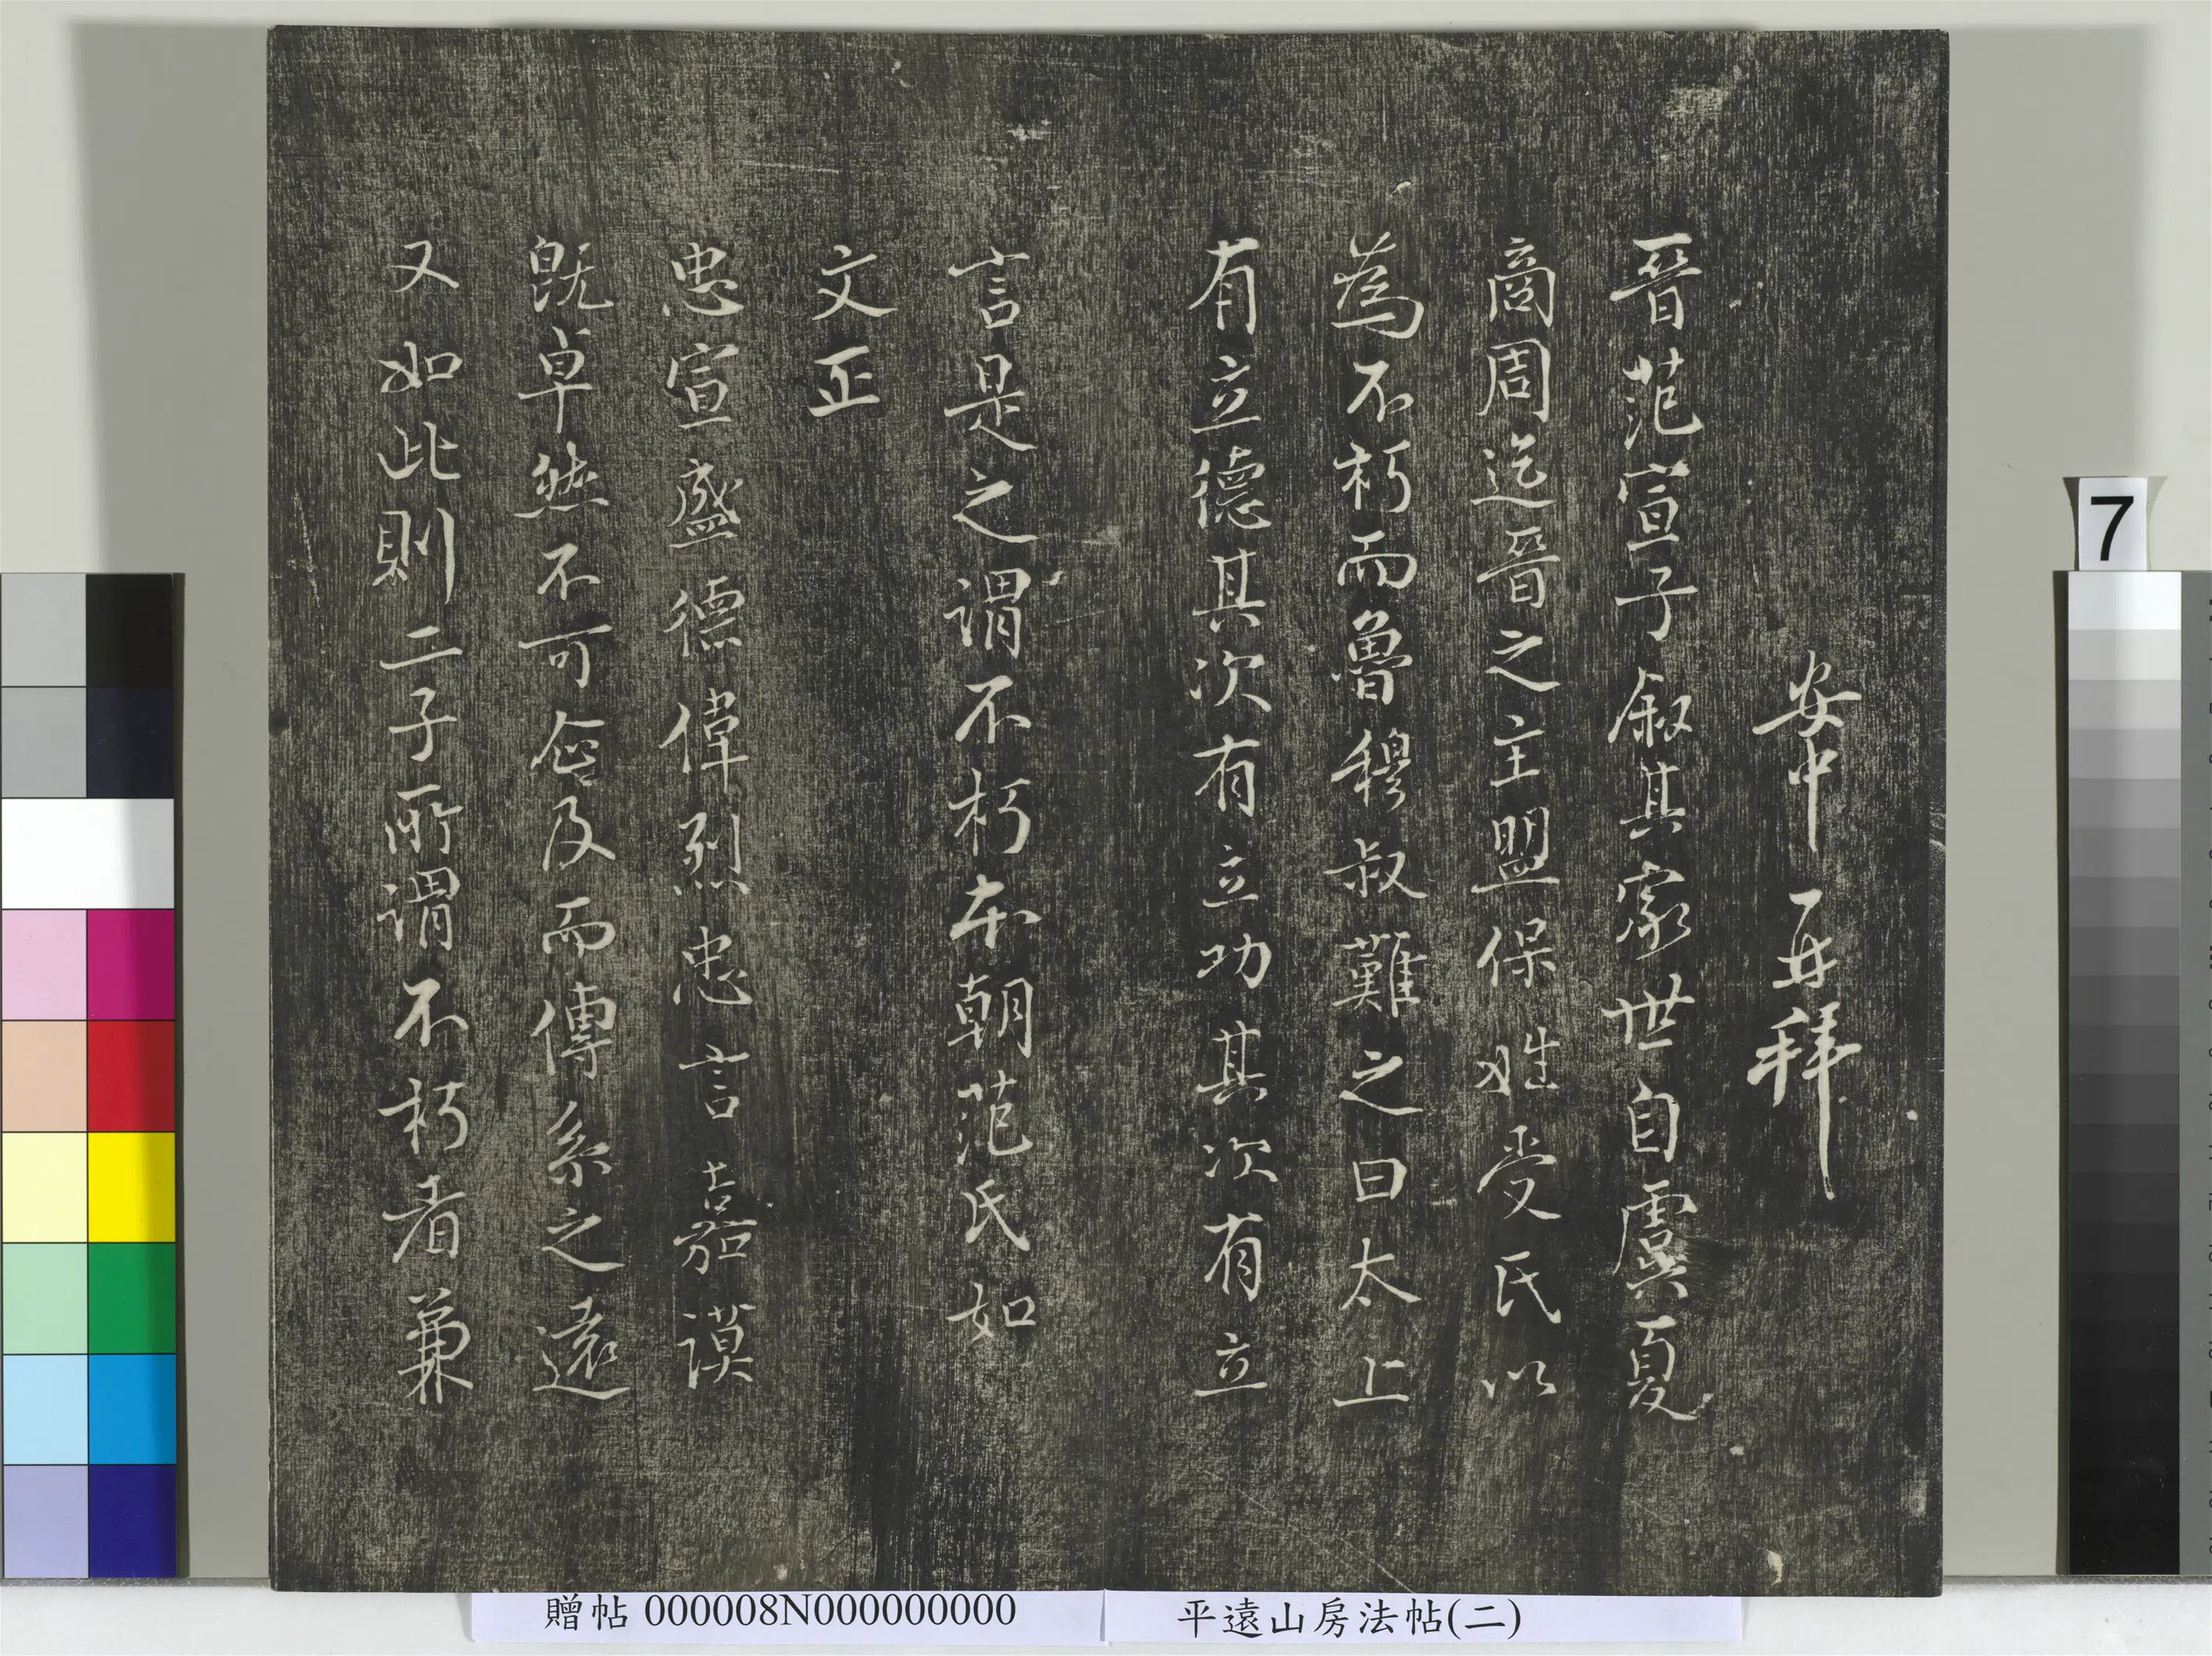 安中再拜
晉范宣子叙其家世自虞夏
商周迄晉之主盟保姓受氏以
為不朽而魯穆叔難之曰太上
有立德其次有立功其次有立
言是之謂不朽本朝范氏如
文正
忠宣盛德偉烈忠言嘉謨
既卓然不可企及而傳系之遠
又如此則二子所謂不朽者兼
7
贈帖 000008N000000000
平遠山房法帖(二)